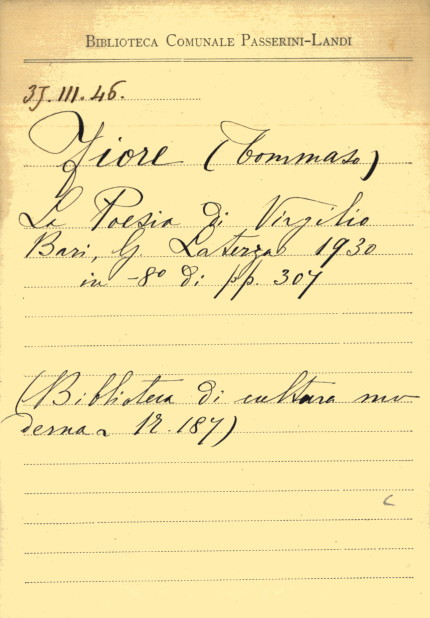 BIBLIOTECA COMUNALE PASSERINI-LANDI
3J.III.46.
Fiore (Tommaso)
La Poesia di Virgilio
Bari, G. Laterza 1930
in -8º di pp. 307
(Biblioteca di cultura mo
derna N. 187)
c